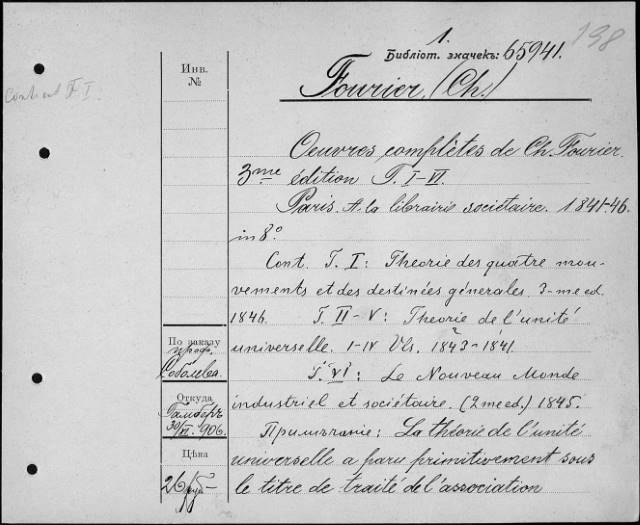 198
1.
Библіот. значекъ: 65941.
Инв.
№
Fourier, (Ch.)
Oeuvres complètes de Ch. Fourier.
3me édition T. I-VI.
Paris. A la librairie sociétaire. 1841-46.
in 8°.
Cont. T. I: Theorie des quatre mou-
vements et des destinées génerales. 3-me ed.
1846. T. II-V: Theorie de l'unité
universelle. I-IV Vls. 1843-1841.
T. VI: Le Nouveau Monde
industriel et sociétaire. (2me ed.) 1845.
Примѣчаніе: La théorie de l'unité
universelle a paru primitivement sous
le titre de traité de l'association
По заказу
проф.
Соболева.
Откуда
30/VI. 906.
Цѣна
26 руб-